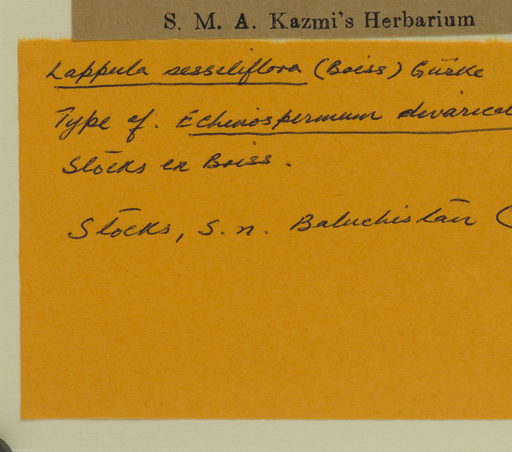 S. M. A. Kazmi's Herbarium
Lappula sessiliflora (Boiss) Gürke
Type of. Echinospermum divarical
Stocks ex Boiss.
Stocks, S. n. Baluchistan (